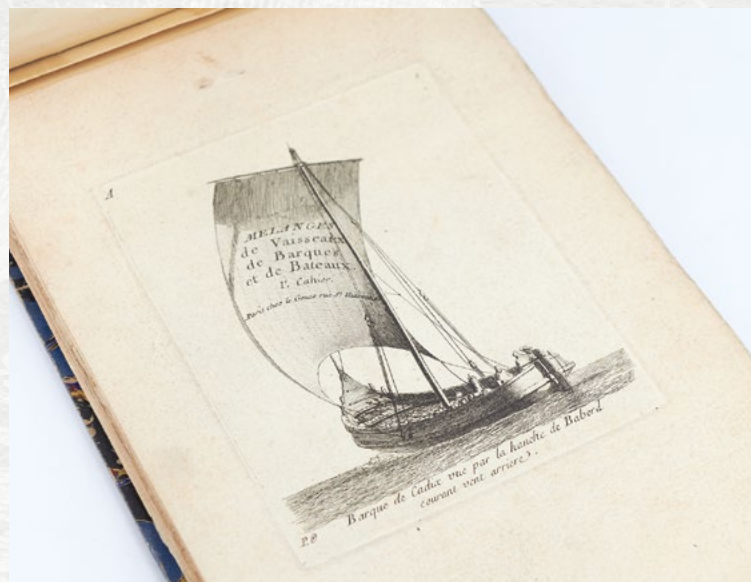 A
1
MELANGES
de Vaisseaux
de Barques
et de Bateaux.
1r. Cahier.
Paris chez le Gouaz rue St. Hiacinthe
Barque de Cadix vue par la hanche de Babord
courant vent arriere.
P.O